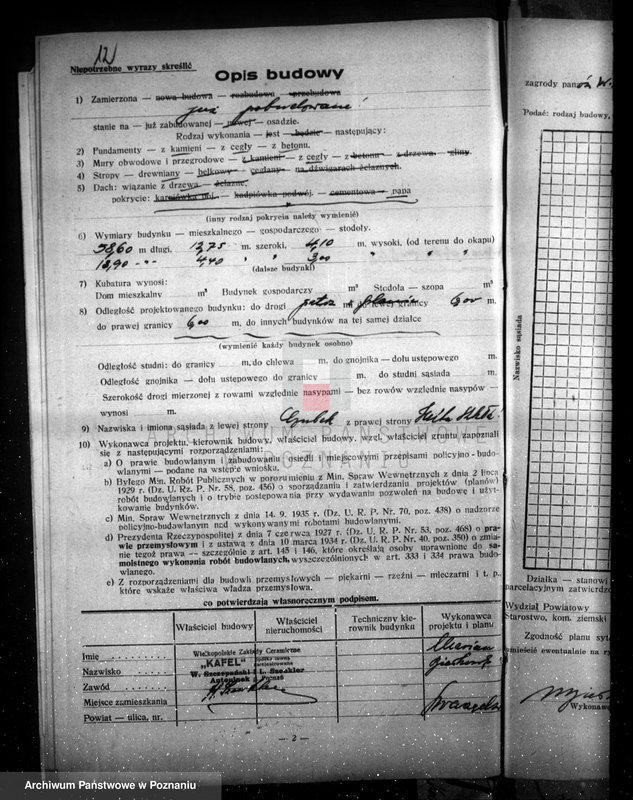 12
Niepotrzebne wyrazy skreślić
Opis budowy
1) Zamierzona — nowa budowa — rozbudowa — przebudowa
już pobudowane
stanie na — już zabudowanej — nowej — osadzie.
Rodzaj wykonania — jest — będzie — następujący:
2) Fundamenty — z kamieni — z cegły — z betonu.
3) Mury obwodowe i przegrodowe — z kamieni — z cegły — z betonu — z drzewa — gliny
4) Stropy — drewniany — belkowy — ceglany — na dźwigarach żelaznych.
5) Dach: wiązanie z drzewa — żelazne.
pokrycie: karpiówka poj. — kadpiówka podwój. — cementowa — papa
(inny rodzaj pokrycia należy wymienić)
6) Wymiary budynku — mieszkalnego — gospodarczego — stodoły.
58,60 m długi, 13,75 m. szeroki, 4,10 m. wysoki, (od terenu do okapu)
12,90 -"- 4,40 " " 3,00 " " "
(dalsze budynki)
7) Kubatura wynosi:
Dom mieszkalny m³ Budynek gospodarczy m³ Stodoła — szopa m³
8) Odległość projektowanego budynku: do drogi patrz m. do lewej granicy 600 m.
do prawej granicy 600 m, do innych budynków na tej samej działce
(wymienić każdy budynek osobno)
Odległość studni: do granicy m. do chlewa m. do gnojnika — dołu ustępowego m.
Odległość gnojnika — dołu ustępowego do granicy m. do studni sąsiada m.
Szerokość drogi mierzonej z rowami względnie nasypami — bez rowów względnie nasypów —
wynosi m.
9) Nazwiska i imiona sąsiada z lewej strony z prawej strony
10) Wykonawca projektu, kierownik budowy, właściciel budowy, wzgl. właściciel gruntu zapoznali
się z następującymi rozporządzeniami:
a) O prawie budowlanym i zabudowaniu osiedli i miejscowymi przepisami policyjno-budo-
wlanymi — podane na wstępie wniosku.
b) Byłego Min. Robót Publicznych w porozumieniu z Min. Spraw Wewnętrznych z dnia 2 lipca
1929 r. (Dz. U. Rz. P. Nr. 58, poz. 456) o sporządzaniu i zatwierdzaniu projektów (planów)
robót budowlanych i o trybie postępowania przy wydawaniu pozwoleń na budowę i użyt-
kowanie budynków.
c) Min. Spraw Wewnętrznych z dnia 14. 9. 1935 r. (Dz. U. R. P. Nr. 70, poz. 438) o nadzorze
policyjno-budowlanym nad wykonywanymi robotami budowlanymi.
d) Prezydenta Rzeczypospolitej z dnia 7 czerwca 1927 r. (Dz. U. R. P. Nr. 53, poz. 468) o pra-
wie przemysłowym i z ustawą z dnia 10 marca 1934 r. (Dz. U. R. P. Nr. 40. poz. 350) o zmia-
nie tegoż prawa — szczególnie z art. 145 i 146, które określają osoby uprawnione do sa-
moistnego wykonania robót budowlanych, wyszczególnionych w art. 333 i 334 prawa budo-
wlanego.
e) Z rozporządzeniami dla budowli przemysłowych — piekarni — rzeźni — mleczarni i t. p.,
które wskaże właściwa władza przemysłowa.
co potwierdzają własnoręcznym podpisem.
Właściciel budowy
Właściciel nieruchomości
Techniczny kierownik budynku
Wykonawca projektu i planu
Imię
Nazwisko
Zawód
Miejsce zamieszkania
Powiat — ulica, nr.
Wielkopolskie Zakłady Ceramiczne
„KAFEL" Spółka jawna zarejestrowana
W. Szczepański i L. Szenkler
Antoninek p. Poznań
Marian
— 2 —
zagrody pana
Podać: rodzaj budowy,
Nazwisko sąsiada
Działka — stanowi
parcelacyjnym zatwierdz
Wydział Powiatowy
Starostwo, kom. ziemski
Zgodność planu syt
umieścić ewentualnie na
Wykonawc
ARCHIWUM PAŃSTWOWE
W POZNANIU
Archiwum Państwowe w Poznaniu